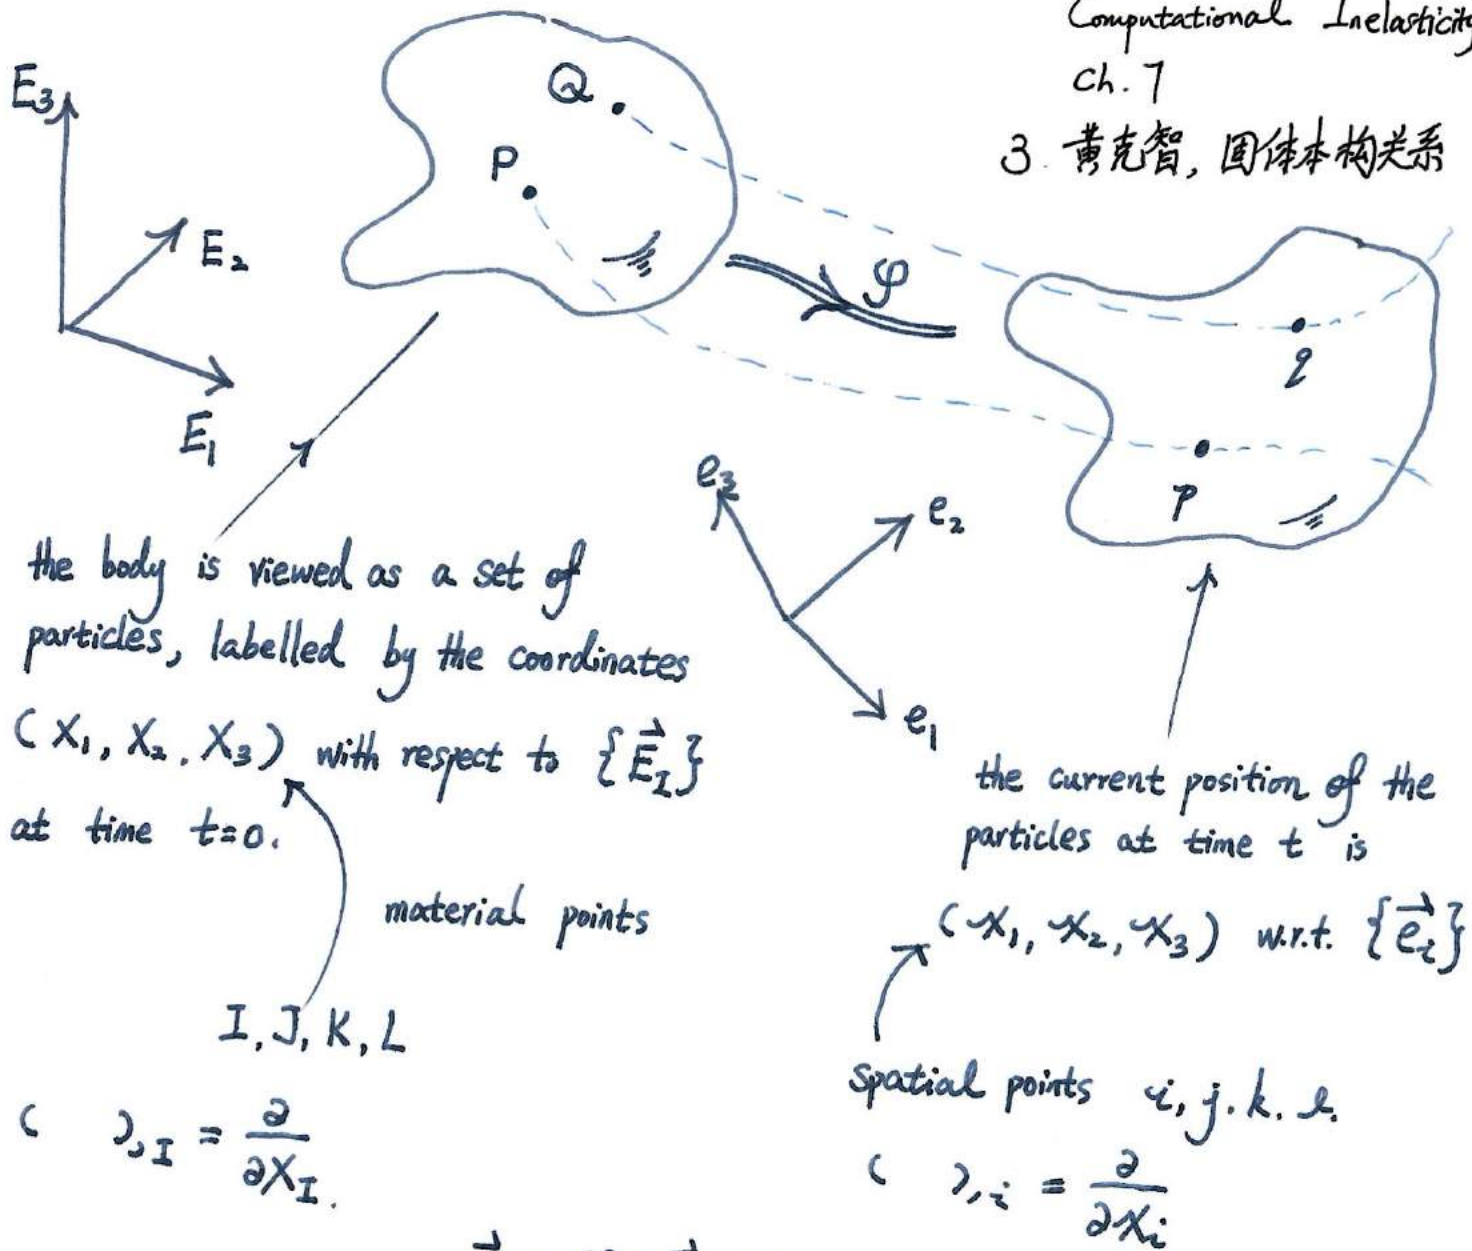 Computational Inelasticity
ch. 7
3. 黄克智, 固体本构关系
E₃
E₂
E₁
Q
P
φ
q
p
e₃
e₂
e₁
the body is viewed as a set of
particles, labelled by the coordinates
(X₁, X₂, X₃) with respect to {E⃗_I}
at time t=0.
material points
I, J, K, L
( ),_I = ∂/∂X_I.
the current position of the
particles at time t is
(x₁, x₂, x₃) w.r.t. {e⃗_i}
spatial points i, j. k. l.
( ),_i = ∂/∂x_i